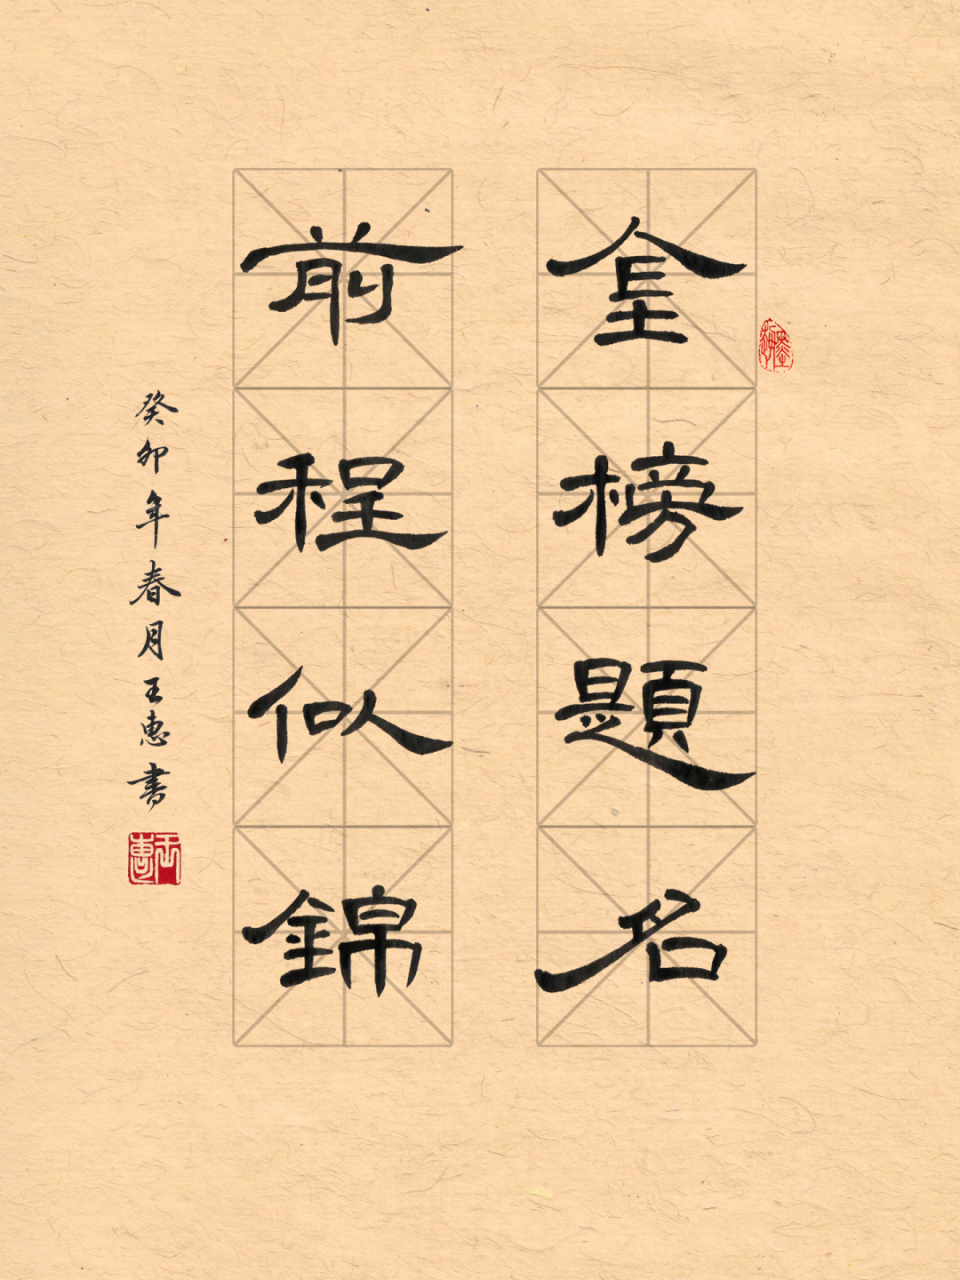 金榜題名
前程似錦
癸卯年春月王惠書